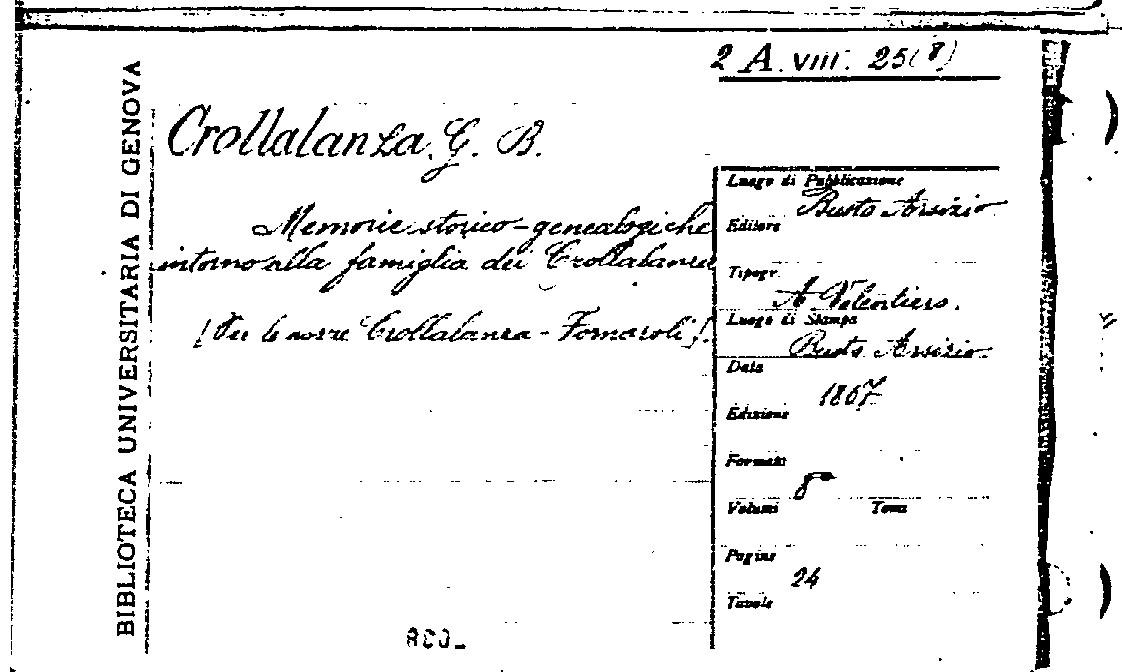 2 A. VIII. 25(8)
BIBLIOTECA UNIVERSITARIA DI GENOVA
Crollalanza, G. B.
Memorie storico-genealogiche
intorno alla famiglia dei Crollalanza
(Per le nozze Crollalanza - Fornaroli).
Luogo di Pubblicazione
Busto Arsizio
Editore
Tipogr.
A Valentiers.
Luogo di Stampa
Busto Arsizio.
Data
1867
Edizione
Formato
8°
Volumi Tomi
Pagine
24
Tavole